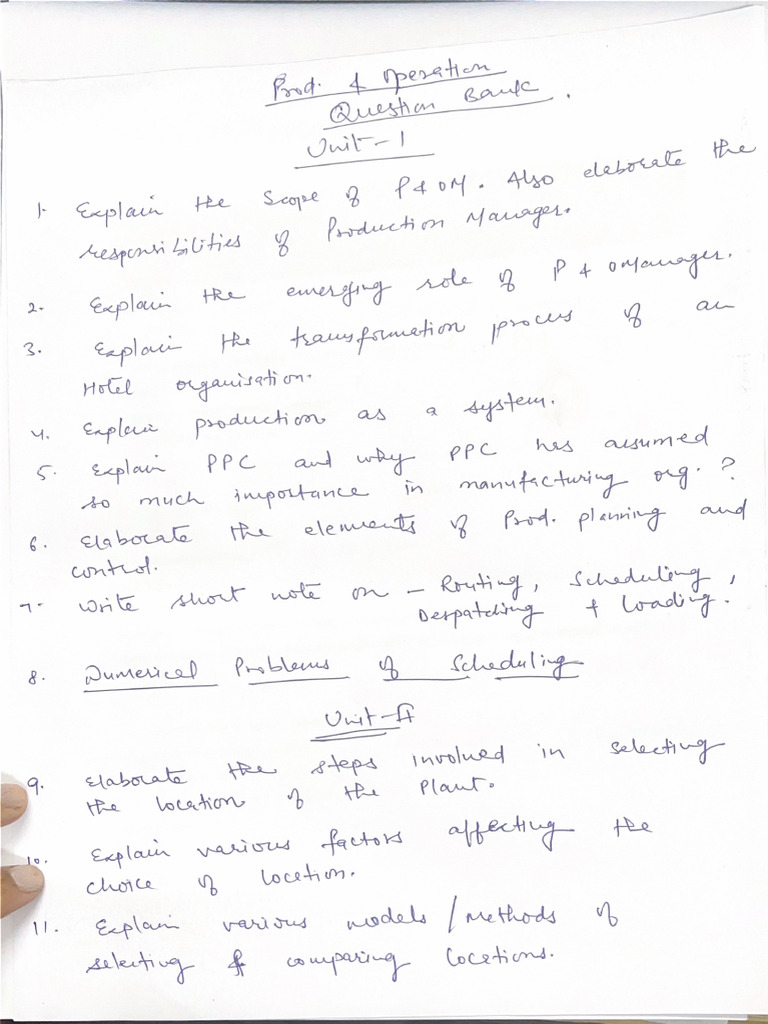 Prod. & Operation
Question Bank.
Unit-1
1. Explain the Scope of P & OM. Also elaborate the
responsibilities of Production Manager.
2. Explain the emerging role of P & O Manager.
3. Explain the transformation process of an
Hotel organisation.
4. Explain production as a system.
5. Explain PPC and why PPC has assumed
so much importance in manufacturing org.?
6. Elaborate the elements of Prod. planning and
control.
7. Write short note on - Routing, Scheduling,
Despatching & Loading.
8. Numerical Problems of Scheduling
Unit-II
9. Elaborate the steps involved in selecting
the location of the Plant.
10. Explain various factors affecting the
choice of location.
11. Explain various models/methods of
selecting & comparing locations.